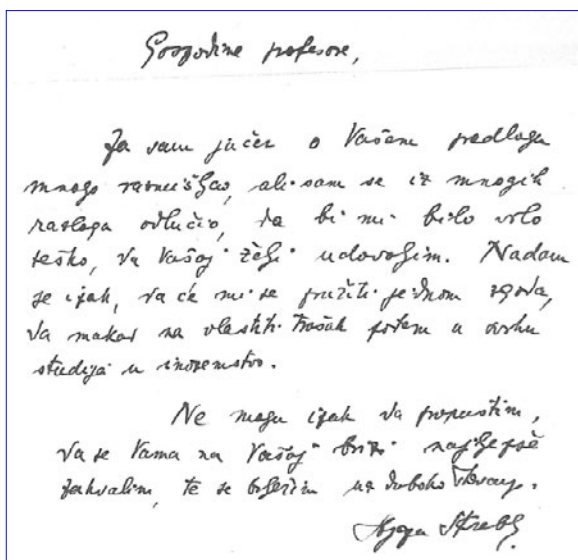 Gospodine profesore,
Ja sam jučer o Vašem predlogu
mnogo razmišljao, ali sam se iz mnogih
razloga odlučio, da bi mi bilo vrlo
teško, da Vašoj želji udovoljim. Nadam
se ipak, da će mi se pružiti jednom zgoda,
da makar na vlastiti trošak pođem u svrhu
studija u inozemstvo.
Ne mogu ipak da propustim,
da se Vama na Vašoj brizi najljepše
zahvalim, te se bilježim uz duboko štovanje.